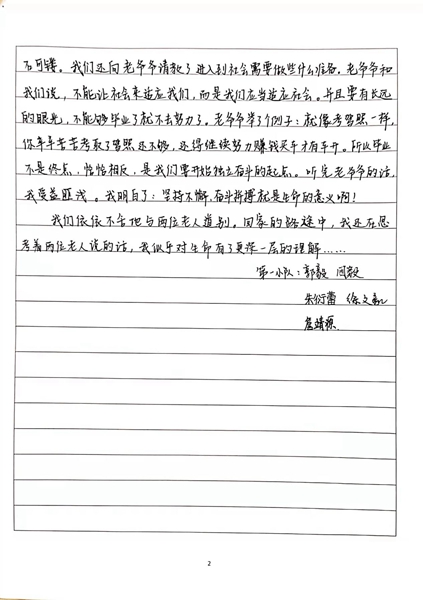 不可镂。我们还向老爷爷请教了进入到社会需要做些什么准备。老爷爷和
我们说，不能让社会来适应我们，而是我们应当适应社会。并且要有长远
的眼光，不能够毕业了就不去努力了。老爷爷举了例子：就像考驾照一样，
你辛辛苦苦考取了驾照还不够，还得继续努力赚钱买车才有车开。所以毕业
不是终点，恰恰相反，是我们要开始独立奋斗的起点。听完老爷爷的话，
我受益匪浅。我明白了：坚持不懈，奋斗拼搏就是生命的意义啊！
我们依依不舍地与两位老人道别。回家的路途中，我还在思
考着两位老人说的话，我似乎对生命有了更深一层的理解……
第一小队：郭毅 闫毅
朱衍蕾 徐文
詹靖源
2